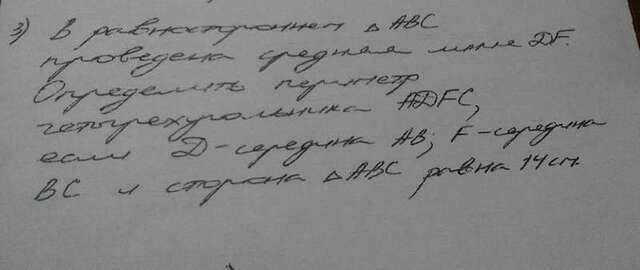 3) В равностороннем △ABC
проведена средняя линия DF.
Определить периметр
четырехугольника ADFC,
если D - середина AB; F - середина
BC и сторона △ABC равна 14 см.